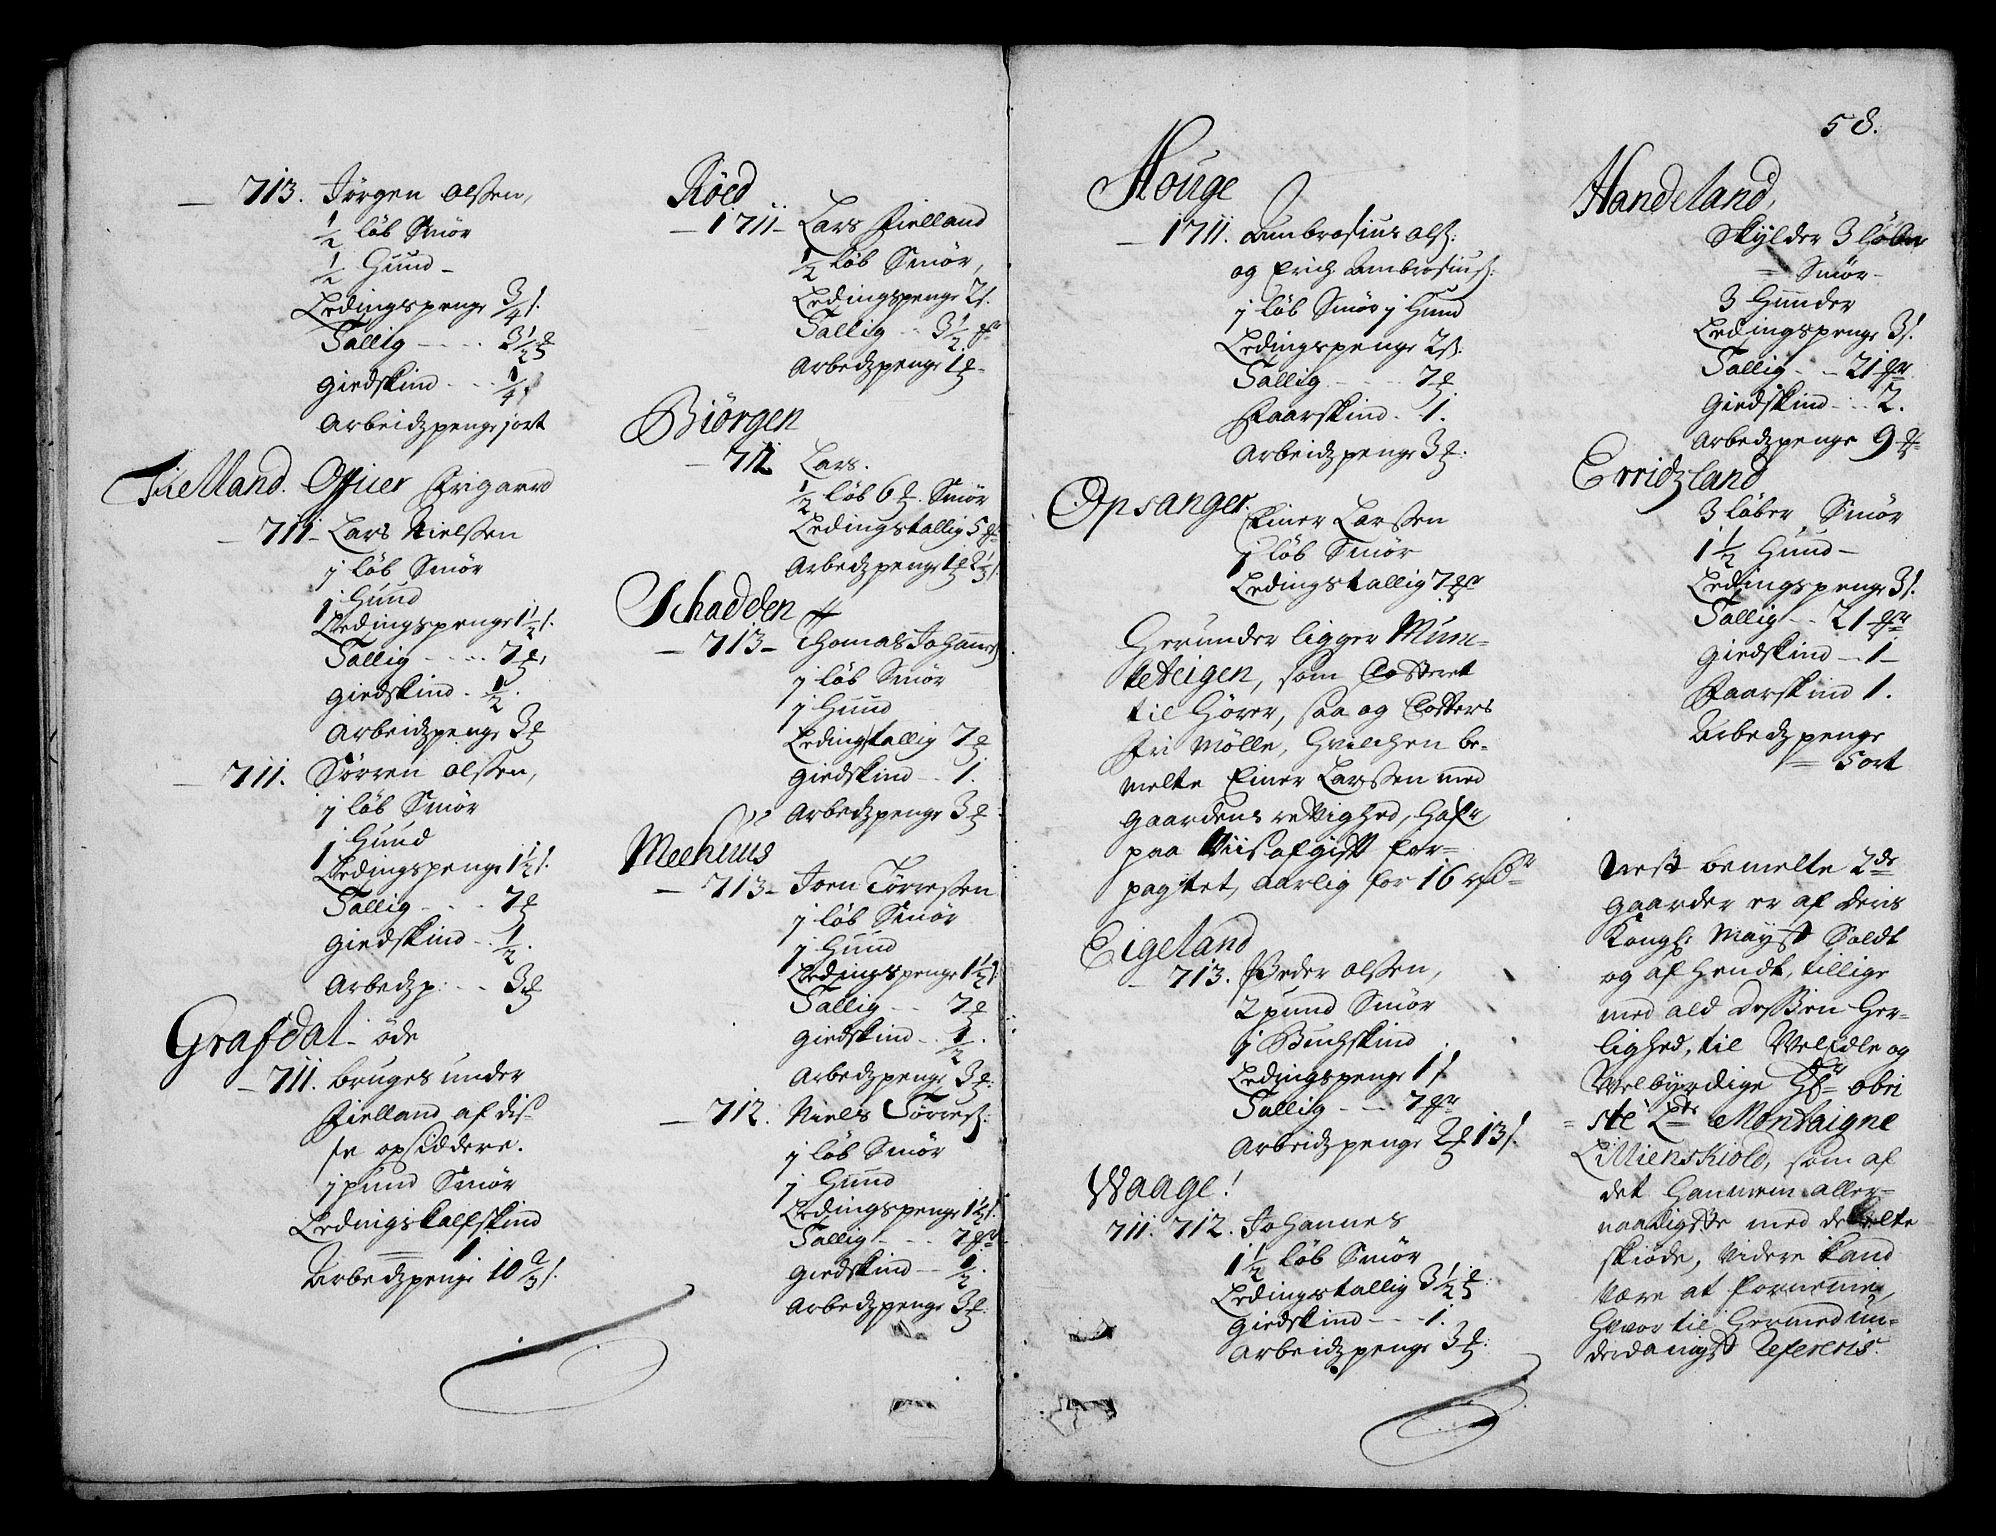 713. Jørgen Olssen,
1/2 løb Smör
1/2 Huud
Ledingspenge 3/4 s.
Tallig - - 3 1/2 ℔
giedskind - - 1/4
Arbeidzpenge j ort
Fielland. Officier
711 Lars Nielssen
j løb Smör
j Huud
Ledingspenge 1 1/2 s.
Tallig - - 7 ℔
giedskind - 1/2.
Arbeidzpenge 3 ℔
711. Sørren Olssen,
j løb Smör
j Huud
Ledingspenge 1 1/2 s.
Tallig - - 7 ℔
giedskind - 1/2.
Arbedzp: - - 3 ℔
Grafdal - öde
711. bruges under
Fielland af dis-
se opsiddere.
j pund Smör
Ledings kalfskind
1.
Arbedzpenge 10 2/3 s.
Röed
1711 - Lars Fielland
1/2 løb Smör,
Ledingspenge 2 s.
Tallig - - 3 1/2 ℔
Arbedzpenge 1 ℔
Biörgen
712 Lars.
1/2 løb 6 ℔ Smör
Ledingstallig 5 ℔
Arbedzpenge 1 ℔ 2 1/3 s.
Schadden
713 - Thomas Johannes
j løb Smör
j Huud
Ledingstallig 7 ℔
giedskind - - 1.
Arbedzpenge 3 ℔
Meehuus
713 - Joen Törressen
j løb Smör
j Huud
Ledingspenge 1 1/2 s
Tallig - - 7 ℔
giedskind - 1/2.
Arbedzpenge 3 ℔:
712. Niels Törress:
j løb Smör
j Huud
Ledingspenge 1 1/2 s.
Tallig - - 7 ℔
giedskind - - 1/2.
Arbedzpenge 3 ℔:
58.
Houge
1711. Ambrosius Ols:
og Erich Ambrosius:
j løb Smör j Huud
Ledingspenge 2 s:
Tallig - - - 7 ℔
Faarskind - 1.
Arbeidzpenge 3 ℔:
Opsanger. Einer Larssen
j løb Smör
Ledingstallig 7 ℔
Herunder ligger Mun-
keteigen, som Closteret
til hører, saa og Closters
fri Mølle, hvilchen be-
melte Einer Larssen med
gaardens rettighed, hafr
paa Viis afgift for-
pagtet, aarlig for 16 rdr
Eigeland
713. Peder Olssen,
2 pund Smör
j Buchskind
Ledingspenge 1 s
Tallig - - 7 ℔
Arbeidzpenge 2 ℔ 13 s.
Waage!
711. 712. Johannes
1 1/2 løb Smör
Ledingstallig 3 1/2 ℔:
giedskind - - - 1.
Arbeidzpenge 3 ℔:
Handeland,
Skylder 3 løber
Smör -
3 Huuder
Ledingspenge 3 s.
Tallig - - 21 ℔
giedskind - - 2.
Arbedzpenge 9 ℔
Erridzland
3 løber Smör
1 1/2 Huud -
Ledingspenge 3 s.
Tallig - - 21 ℔
giedskind - - 1 -
Faarskind 1.
Arbedzpenge
5 ort
Nest bemelte 2de
gaarder er af deris
Kongl: Mayst Soldt
og af hendt, tillige
med ald dessen Her-
lighed, til Velædle og
Velbyrdige Hr obri
ste Montaigne
Lillienskiold, som af
det hannem aller-
naadigste med deelte
skiøde, videre kand
være at fornemme,
hvortil hermed un-
derdanigst Refereris.